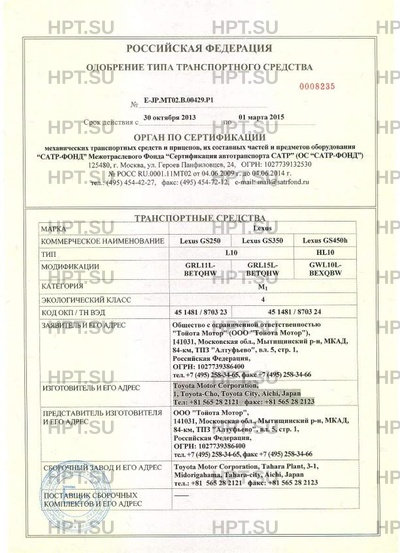 РОССИЙСКАЯ ФЕДЕРАЦИЯ
ОДОБРЕНИЕ ТИПА ТРАНСПОРТНОГО СРЕДСТВА
0008235
№ E-JP.MT02.B.00429.P1
Срок действия с 30 октября 2013 по 01 марта 2015
ОРГАН ПО СЕРТИФИКАЦИИ
механических транспортных средств и прицепов, их составных частей и предметов оборудования
“САТР-ФОНД” Межотраслевого Фонда “Сертификация автотранспорта САТР” (ОС “САТР-ФОНД”)
125480, г. Москва, ул. Героев Панфиловцев, 24, ОГРН: 1027739132530
№ РОСС RU.0001.11МТ02 от 04.06.2009 г. до 04.06.2014 г.
тел.: (495) 454-42-27, факс: (495) 454-72-12, e-mail: mail@satrfond.ru
ТРАНСПОРТНЫЕ СРЕДСТВА
МАРКА Lexus
КОММЕРЧЕСКОЕ НАИМЕНОВАНИЕ Lexus GS250 Lexus GS350 Lexus GS450h
ТИП L10 HL10
МОДИФИКАЦИИ GRL11L-BETQHW GRL15L-BETQHW GWL10L-BEXQBW
КАТЕГОРИЯ M1
ЭКОЛОГИЧЕСКИЙ КЛАСС 4
КОД ОКП / ТН ВЭД 45 1481 / 8703 23 45 1481 / 8703 24
ЗАЯВИТЕЛЬ И ЕГО АДРЕС Общество с ограниченной ответственностью
"Тойота Мотор" (ООО "Тойота Мотор"),
141031, Московская обл., Мытищинский р-н, МКАД,
84-км, ТПЗ "Алтуфьево", вл. 5, стр. 1,
Российская Федерация,
ОГРН: 1027739386400
тел. +7 (495) 258-34-65, факс +7 (495) 258-34-66
ИЗГОТОВИТЕЛЬ И ЕГО АДРЕС Toyota Motor Corporation,
1, Toyota-Cho, Toyota City, Aichi, Japan
Тел: +81 565 28 2121 факс: +81 565 28 2123
ПРЕДСТАВИТЕЛЬ ИЗГОТОВИТЕЛЯ ООО "Тойота Мотор",
И ЕГО АДРЕС 141031, Московская обл., Мытищинский р-н, МКАД,
84-км, ТПЗ "Алтуфьево", вл. 5, стр. 1,
Российская Федерация,
ОГРН: 1027739386400
тел. +7 (495) 258-34-65, факс +7 (495) 258-34-66
СБОРОЧНЫЙ ЗАВОД И ЕГО АДРЕС Toyota Motor Corporation, Tahara Plant, 3-1,
Midorigahama, Tahara-city, Aichi, Japan
тел.: +81 565 28 2121, факс: +81 565 28 2123
ПОСТАВЩИК СБОРОЧНЫХ
КОМПЛЕКТОВ И ЕГО АДРЕС
HPT.SU